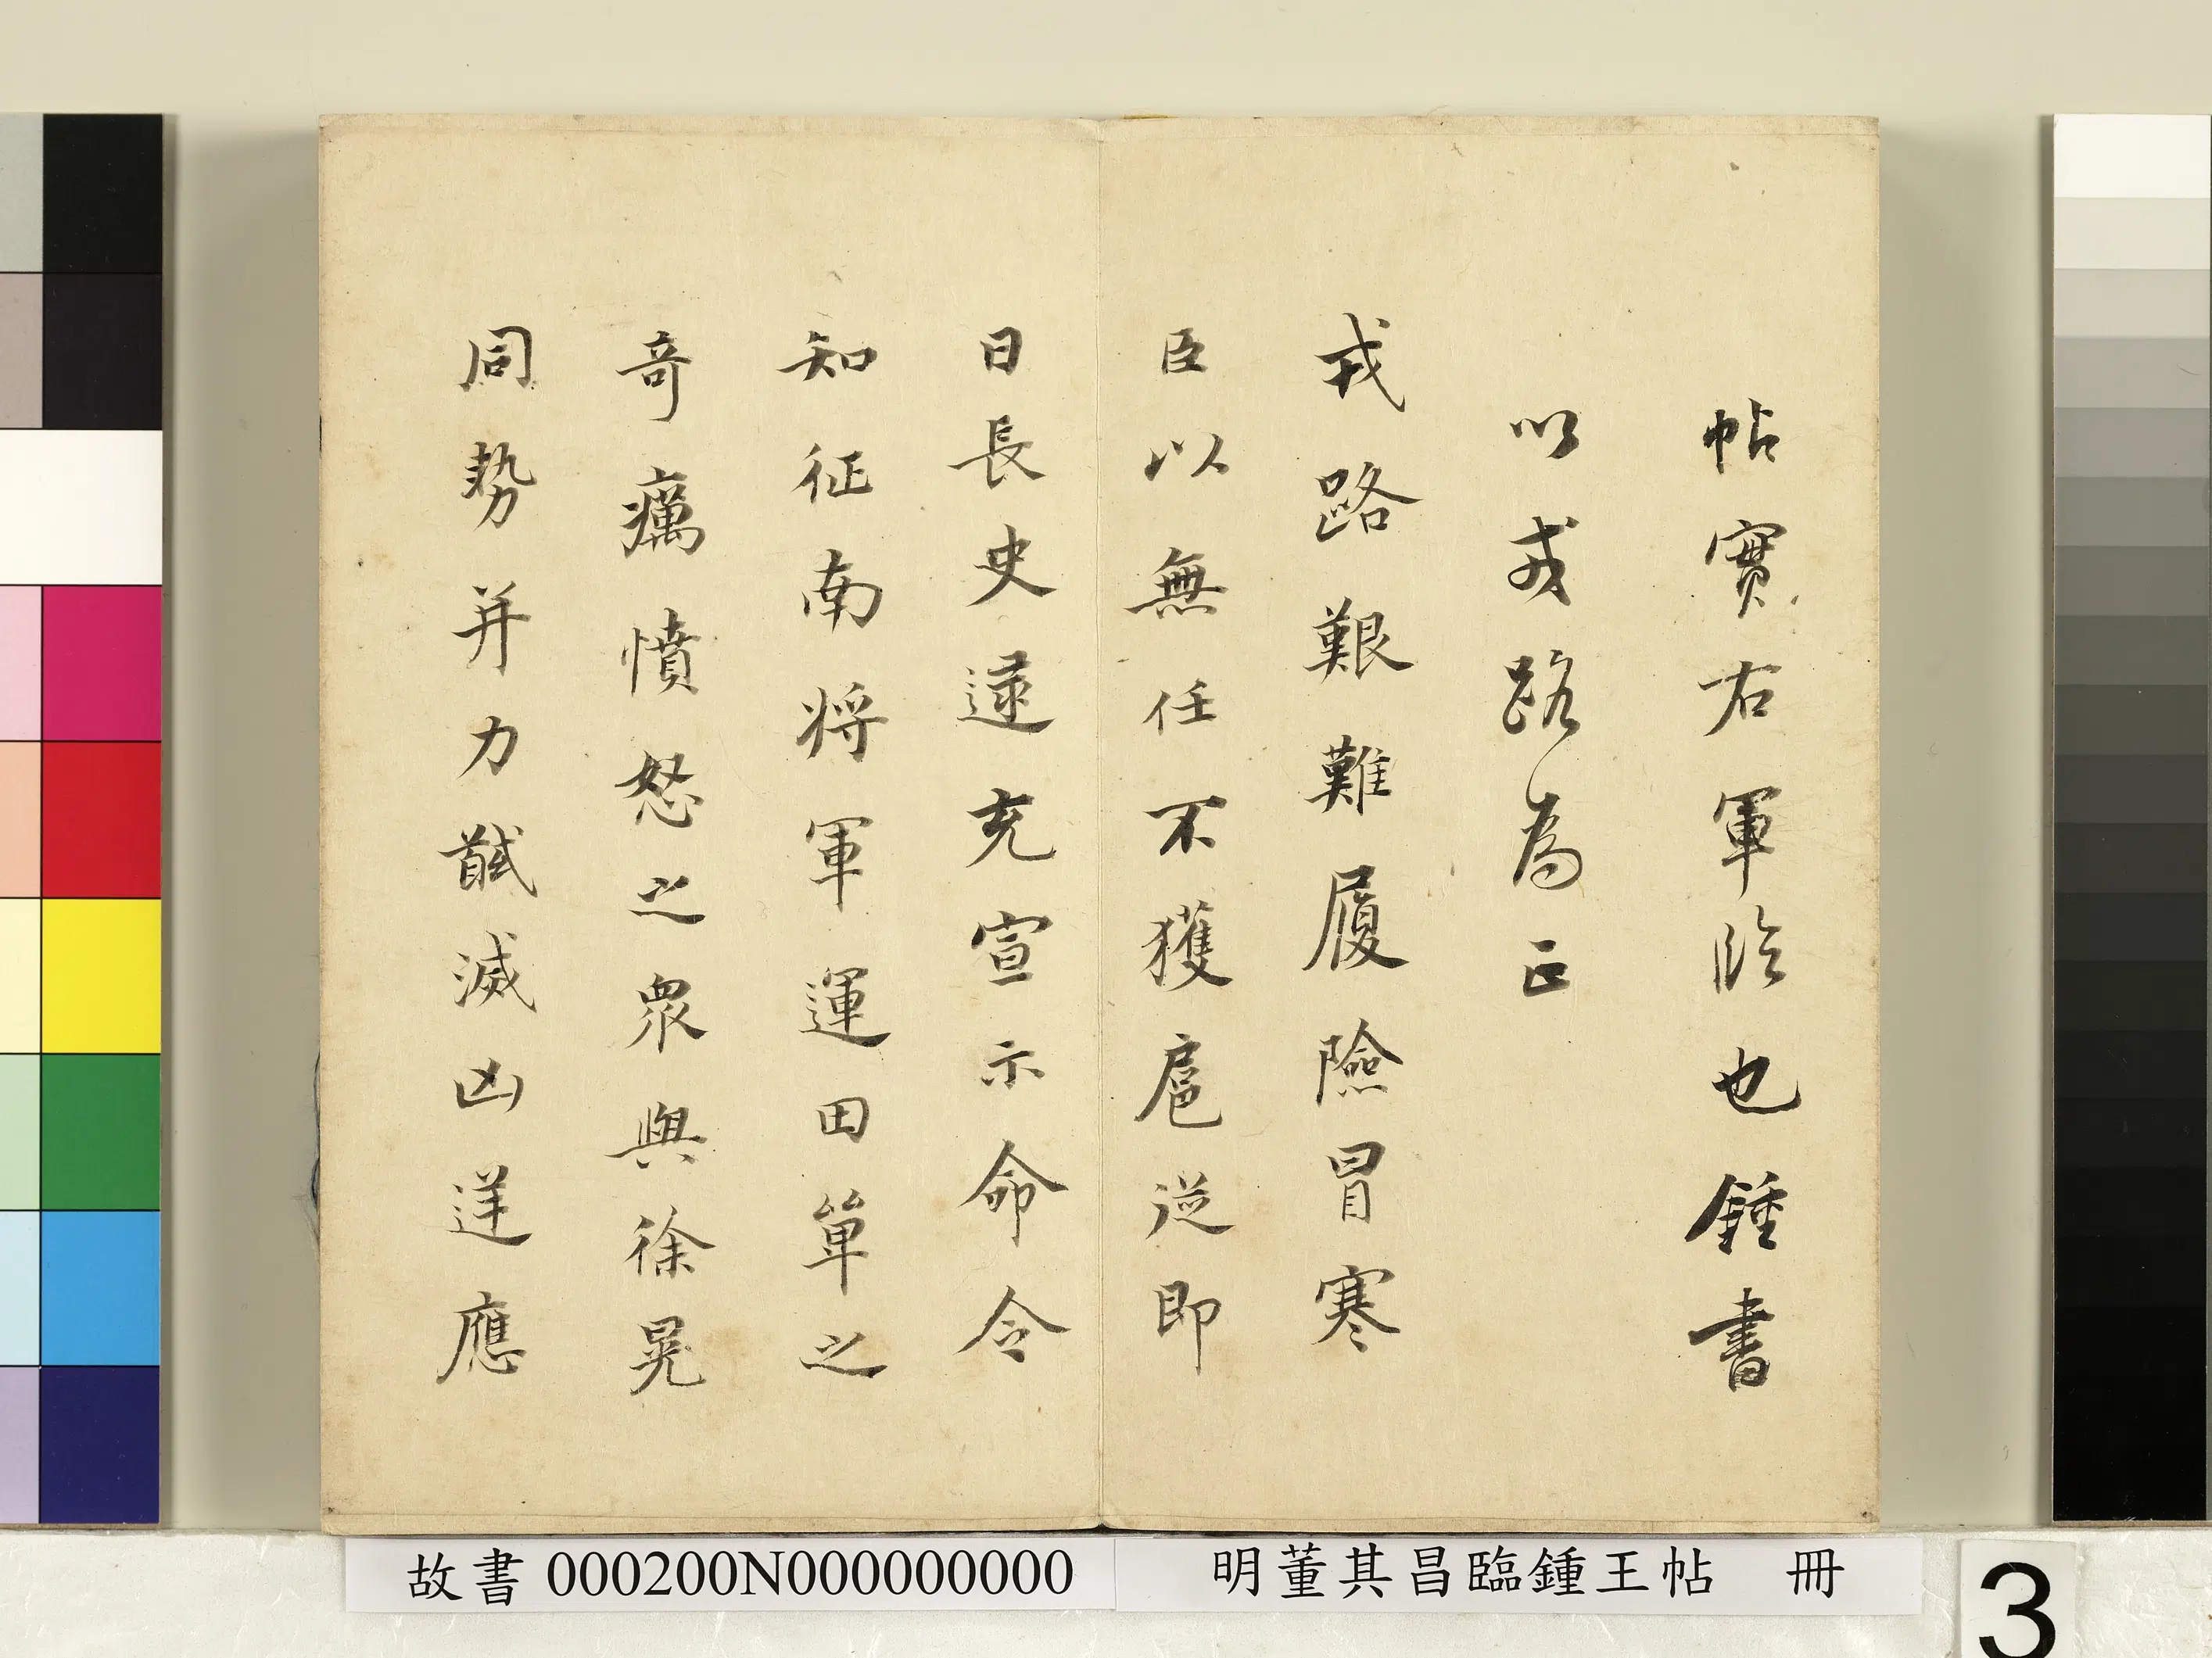 帖實右軍临也鍾書
以戎路為正
戎路艱難履險冒寒
臣以無任不獲扈從即
日長史逯充宣示命令
知征南將軍運田單之
奇癘憤怒之眾與徐晃
同勢并力馘滅凶逆應
故書000200N000000000
明董其昌臨鍾王帖 冊
3